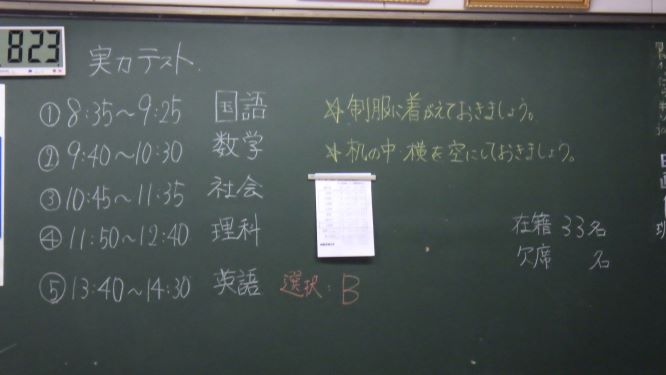 823
実力テスト.
① 8:35～9:25 国語
② 9:40～10:30 数学
③ 10:45～11:35 社会
④ 11:50～12:40 理科
⑤ 13:40～14:30 英語 選択：B
＊制服に着がえておきましょう。
＊机の中・横を空にしておきましょう。
在籍 33名
欠席 名